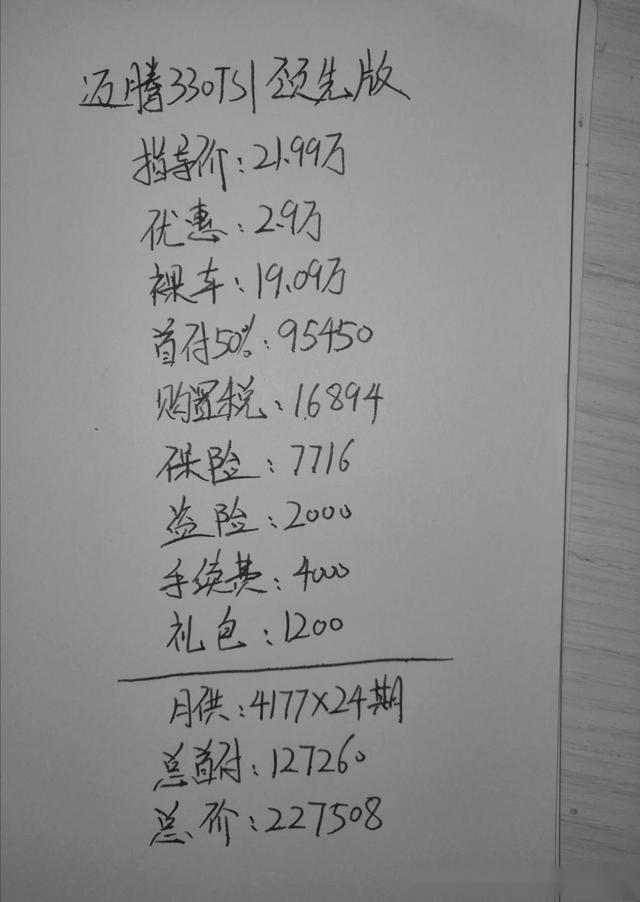 迈腾330TSI 领先版
指导价:21.99万
优惠:2.9万
裸车:19.09万
首付50%:95450
购置税:1.6894
保险:7716
盗险:2000
手续费:4000
礼包:1200
月供:4177×24期
总首付:127260
总价:227508